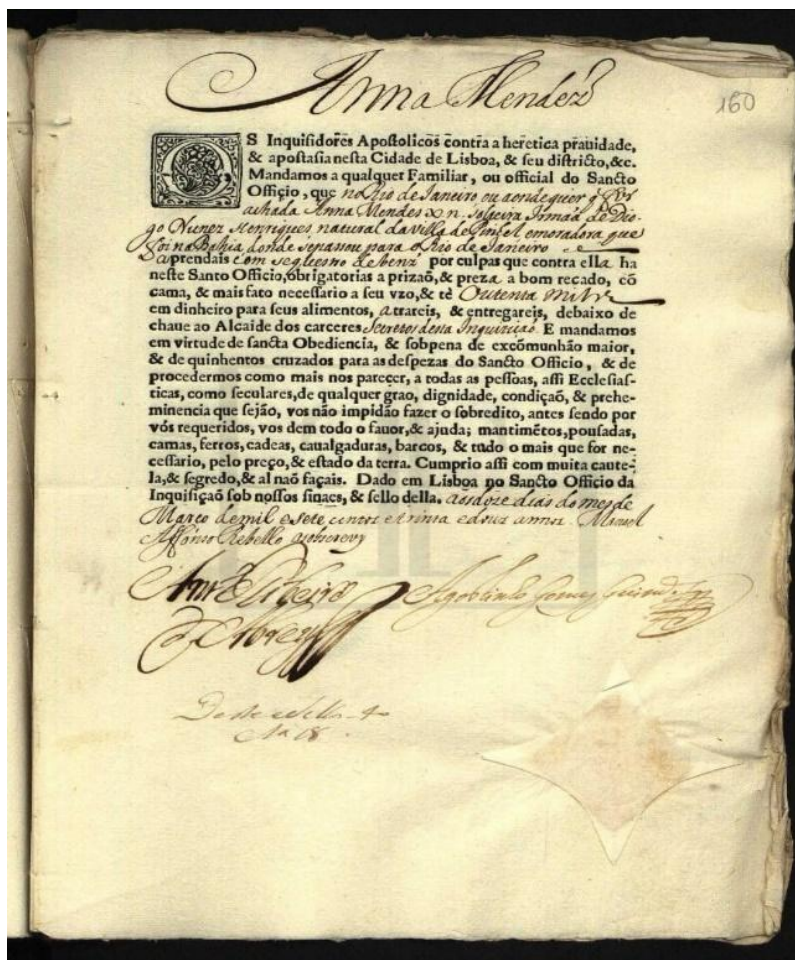 Anna Mendes
160
OS Inquisidores Apostolicos contra a heretica prauidade,
& apostasia nesta Cidade de Lisboa, & seu districto, &c.
Mandamos a qualquer Familiar, ou official do Sancto
Officio, que no Rio de Janeiro ou aonde quer q̃ for
achada Anna Mendes x n. solteira Irmaã de Dio-
go Nunez Henriques, natural da Villa de Pinhel e moradora que
foi na Bahia donde se passou para o Rio de Janeiro
a prendais com sequestro de benz por culpas que contra ella ha
neste Santo Officio, obrigatorias a prizaõ, & preza a bom recado, cõ
cama, & mais fato necessario a seu vzo, & tè Outenta mil rz
em dinheiro para seus alimentos, a trareis, & entregareis, debaixo de
chaue ao Alcaide dos carceres Secretos desta Inquiziçaõ. E mandamos
em virtude de sancta Obediencia, & sobpena de excõmunhão maior,
& de quinhentos cruzados para as despezas do Sancto Officio, & de
procedermos como mais nos parecer, a todas as pessoas, assi Ecclesias-
ticas, como seculares, de qualquer grao, dignidade, condiçaõ, & prehe-
minencia que sejão, vos não impidão fazer o sobredito, antes sendo por
vós requeridos, vos dem todo o fauor, & ajuda; mantimẽtos, pousadas,
camas, ferros, cadeas, caualgaduras, barcos, & tudo o mais que for ne-
cessario, pelo preço, & estado da terra. Cumprio assi com muita caute-
la, & segredo, & al naõ façais. Dado em Lisboa no Sancto Officio da
Inquisiçaõ sob nossos sinaes, & sello della. aos doze dias do mes de
Março de mil e sete centos e trinta e douz annos. Manoel
Affonso Rebello o sobscrevy
Ribeiro
Agostinho Gomes
de Abreu